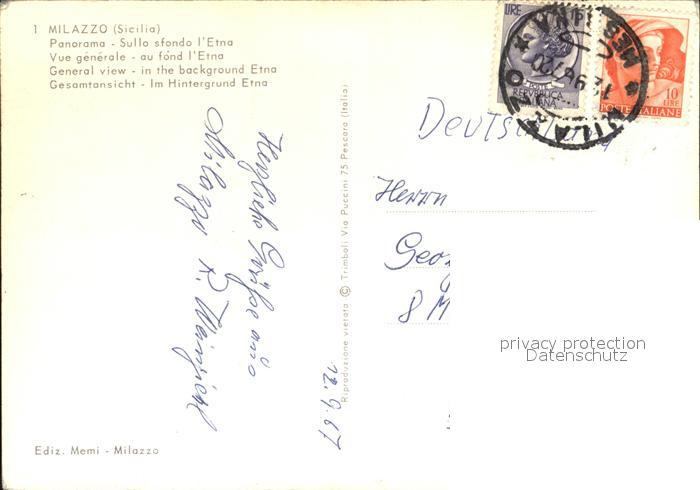 1 MILAZZO (Sicilia)
Panorama - Sullo sfondo l'Etna
Vue générale - au fónd l'Etna
General view - in the background Etna
Gesamtansicht - Im Hintergrund Etna
Herzliche Grüße aus
Milazzo
12.9.67
Ediz. Memi - Milazzo
Riproduzione vietata © Trimboli Via Puccini 75 Pescara (Italia)
LIRE
REPUBBLICA
ITALIANA
10
LIRE
POSTE ITALIANE
Deutschland
Herrn
Geo
8 M
privacy protection
Datenschutz